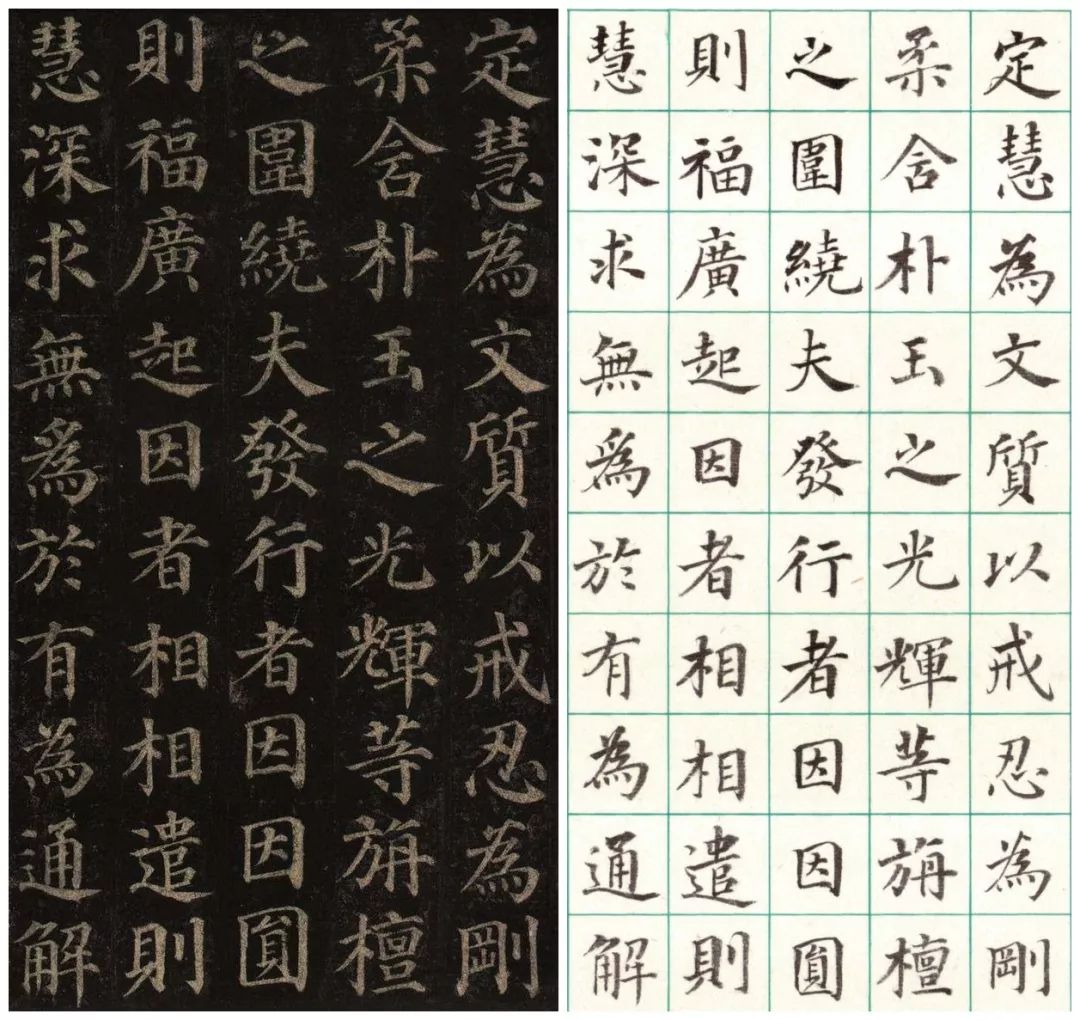 定慧為文質以戒忍為剛
柔舍朴玉之光輝等旃檀
之圍繞夫發行者因因圓
則福廣起因者相相遣則
慧深求無爲於有為通解
定慧為文質以戒忍為剛
柔舍朴玉之光輝等旃檀
之圍繞夫發行者因因圓
則福廣起因者相相遣則
慧深求無爲於有為通解